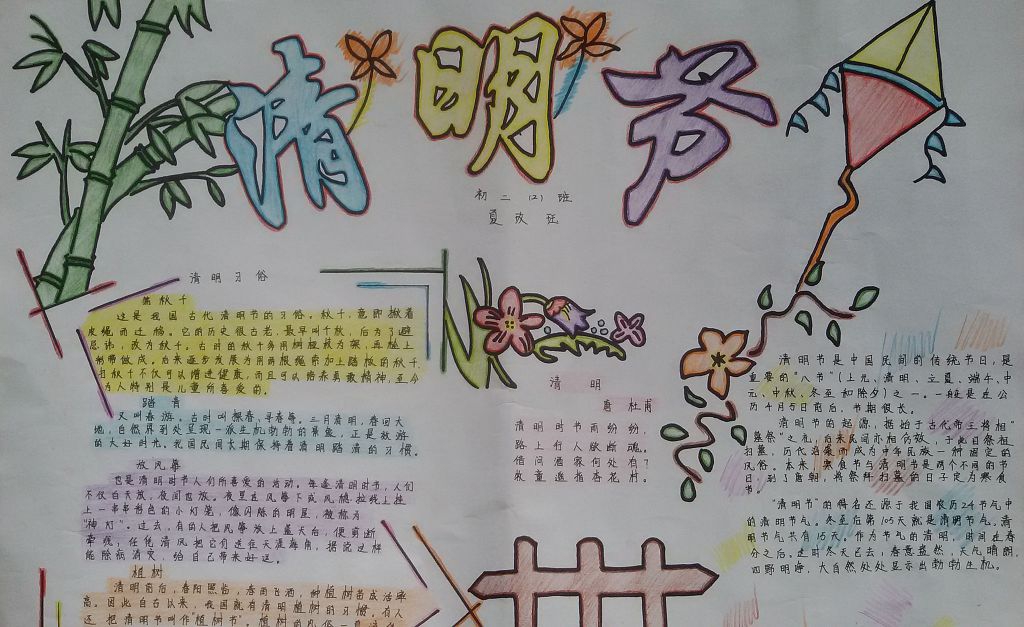 清明节
初二(2)班
清明习俗
荡秋千
这是我国古代清明节的习俗。秋千,意即揪着
皮绳而迁移。它的历史很古老,最早叫千秋,后为了避
忌讳,改为秋千。古时的秋千多用树桠枝为架,再栓上
彩带做成。后来逐步发展为用两根绳索加上踏板的秋千
打秋千不仅可以增进健康,而且可以培养勇敢精神,至今
为人特别是儿童所喜爱的。
踏青
又叫春游。古时叫探春、寻春等。三月清明,春回大
地,自然界到处呈现一派生机勃勃的景象,正是郊游
的大好时光。我国民间长期保持着清明踏清的习惯。
放风筝
也是清明时节人们所喜爱的活动。每逢清明时节,人们
不仅白天放,夜间也放。夜里在风筝下或风稳拉线上挂
上一串串彩色的小灯笼,像闪烁的明星,被称为
“神灯”。过去,有的人把风筝放上蓝天后,便剪断
牵线,任凭清风把它们送往天涯海角,据说这样
能除病消灾,给自己带来好运。
植树
清明前后,春阳照临,春雨飞洒,种植树苗成活率
高。因此自古以来,我国就有清明植树的习惯。有人
还把清明节叫作“植树节”。植树的风俗一直
清明
唐 杜甫
清明时节雨纷纷,
路上行人欲断魂。
借问酒家何处有?
牧童遥指杏花村。
清明节是中国民间的传统节日,是
重要的“八节”(上元、清明、立夏、端午、中
元、中秋、冬至和除夕)之一。一般是在公
历4月5日前后,节期很长。
清明节的起源,据始于古代帝王将相“
墓祭”之礼,后来民间亦相仿效,于此日祭祖
扫墓,历代沿袭而成为中华民族一种固定的
风俗。本来,寒食节与清明节是两个不同的节
日,到了唐朝,将祭拜扫墓的日子定为寒食
节。
“清明节”的得名还源于我国农历24节气中
的清明节气。冬至后第105天就是清明节气。清
明节气共有15天。作为节气的清明,时间在春
分之后。这时冬天已去,春意盎然,天气晴朗,
四野明净,大自然处处显示出勃勃生机。